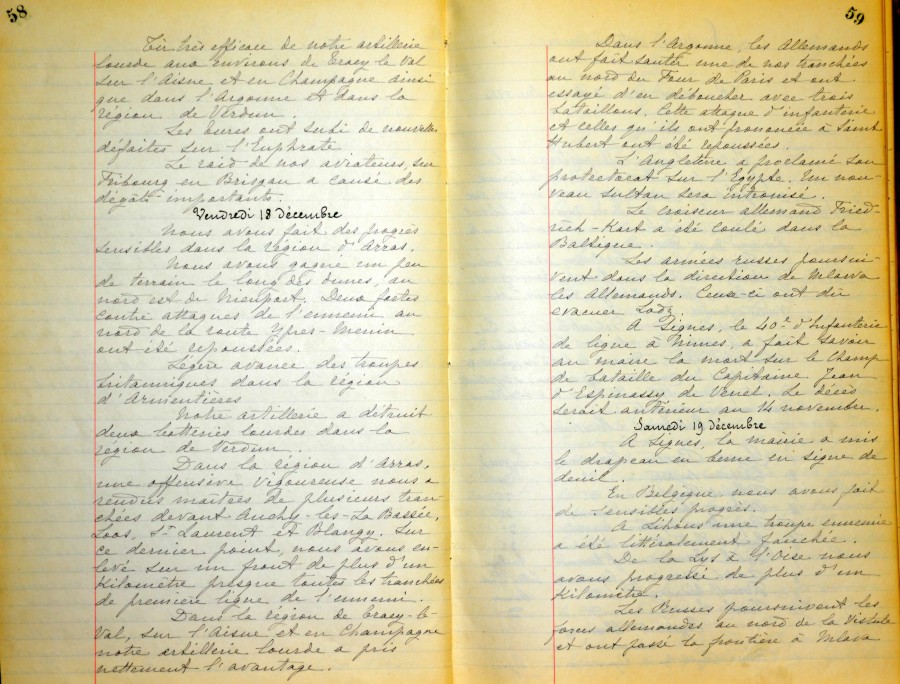 58
Tir très efficace de notre artillerie
lourde aux environs de Tracy le Val
sur l'Aisne et en Champagne ainsi
que dans l'Argonne et dans la
région de Verdun.
Les turcs ont subi de nouvelles
défaites sur l'Euphrate
Le raid de nos aviateurs sur
Fribourg en Brisgau a causé des
dégâts importants.
Vendredi 18 décembre
Nous avons fait des progrès
sensibles dans la région d'Arras.
Nous avons gagné un peu
de terrain le long des dunes, au
nord est de Nieuport. Deux fortes
contre attaques de l'ennemi au
nord de la route Ypres-Menin
ont été repoussées.
Légère avance des troupes
britanniques dans la région
d'Armentières
Notre artillerie a détruit
deux batteries lourdes dans la
région de Verdun.
Dans la région d'Arras,
une offensive vigoureuse nous a
rendus maîtres de plusieurs tran-
chées devant Auchy-les-La Bassée,
Loos, St Laurent et Blangy. Sur
ce dernier point, nous avons en-
levé sur un front de plus d'un
Kilomètre presque toutes les tranchées
de première ligne de l'ennemi.
Dans la région de Tracy-le-
Val, sur l'Aisne et en Champagne
notre artillerie lourde a pris
nettement l'avantage.
59
Dans l'Argonne, les Allemands
ont fait sauter une de nos tranchées
au nord du Four de Paris et ont
essayé d'en déboucher avec trois
bataillons. Cette attaque d'infanterie
et celles qu'ils ont prononcée à Saint
Hubert ont été repoussées.
L'Angleterre a proclamé son
protectorat sur l'Egypte. Un nou-
veau sultan sera intronisé.
Le croiseur allemand Fried-
rich-Karl a été coulé dans la
Baltique.
Les armées russes poursui-
vent dans la direction de Mlawa
les Allemands. Ceux-ci ont dû
évacuer Lodz.
A Signes, le 40e d'Infanterie
de ligne à Nimes, a fait savoir
au maire la mort sur le champ
de bataille du Capitaine Jean
d'Espinassy de Venel. Le décès
serait antérieur au 14 novembre.
Samedi 19 décembre
A Signes, la mairie a mis
le drapeau en berne en signe de
deuil.
En Belgique nous avons fait
de sensibles progrès.
A Lihons une troupe ennemie
a été littéralement fauchée.
De la Lys à l'Oise nous
avons progressé de plus d'un
Kilomètre.
Les Russes poursuivent les
forces allemandes au nord de la Vistule
et ont passé la frontière à Mlava